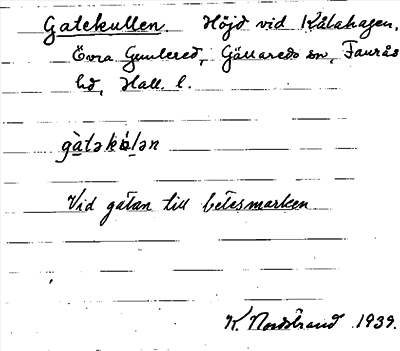 Gatekullen. Höjd vid Kålahagen,
Övra Gunnered, Gällareds sn, Faurås
hd, Hall. l.
gàtəkùlən
Vid gatan till betesmarken
K. Nordstrand 1939.